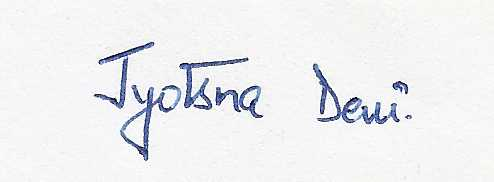 Jyotsna Devi